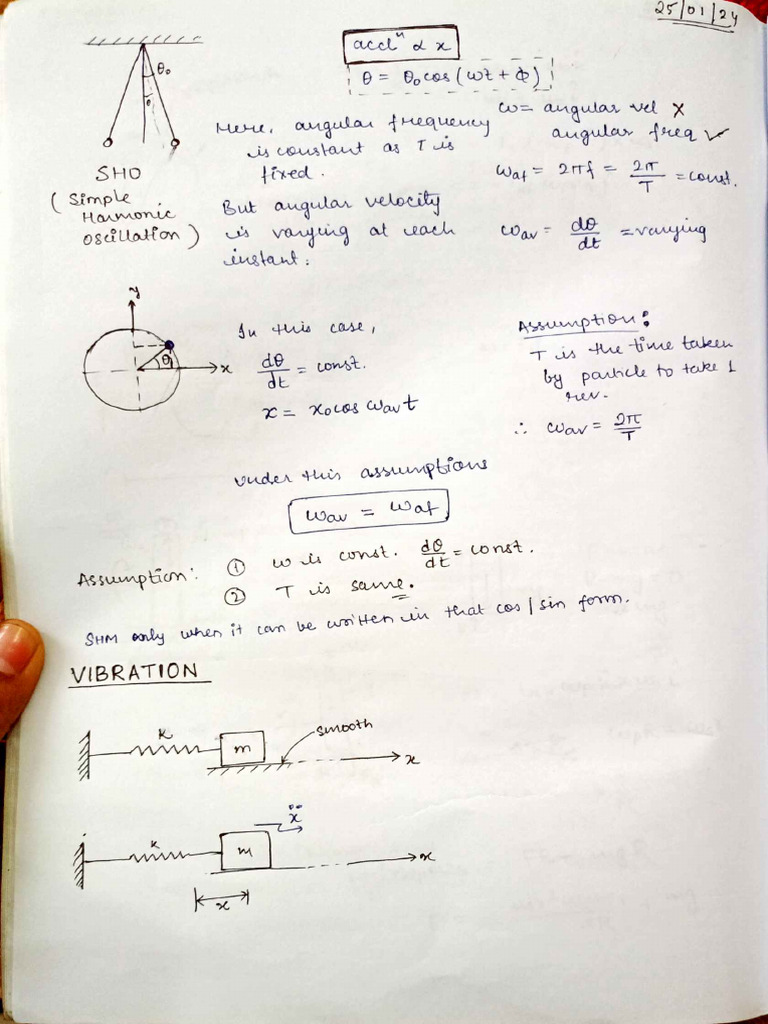 25/01/24
accl^n ∝ x
θ = θ₀ cos (ωt + Φ)
θ₀
θ
SHO
(Simple
Harmonic
Oscillation)
Here, angular frequency
is constant as T is
fixed.
But angular velocity
is varying at each
instant.
ω = angular vel ✗
angular freq ✓
ω_af = 2πf = 2π/T = const.
ω_av = dθ/dt = varying
y
x
θ
In this case,
dθ/dt = const.
x = x₀ cos ω_av t
Assumption:
T is the time taken
by particle to take 1
rev.
∴ ω_av = 2π/T
Under this assumptions
ω_av = ω_af
Assumption: ① ω is const. dθ/dt = const.
② T is same.
SHM only when it can be written in that cos/sin form.
VIBRATION
K
m
smooth
x
ẍ
K
m
x
x